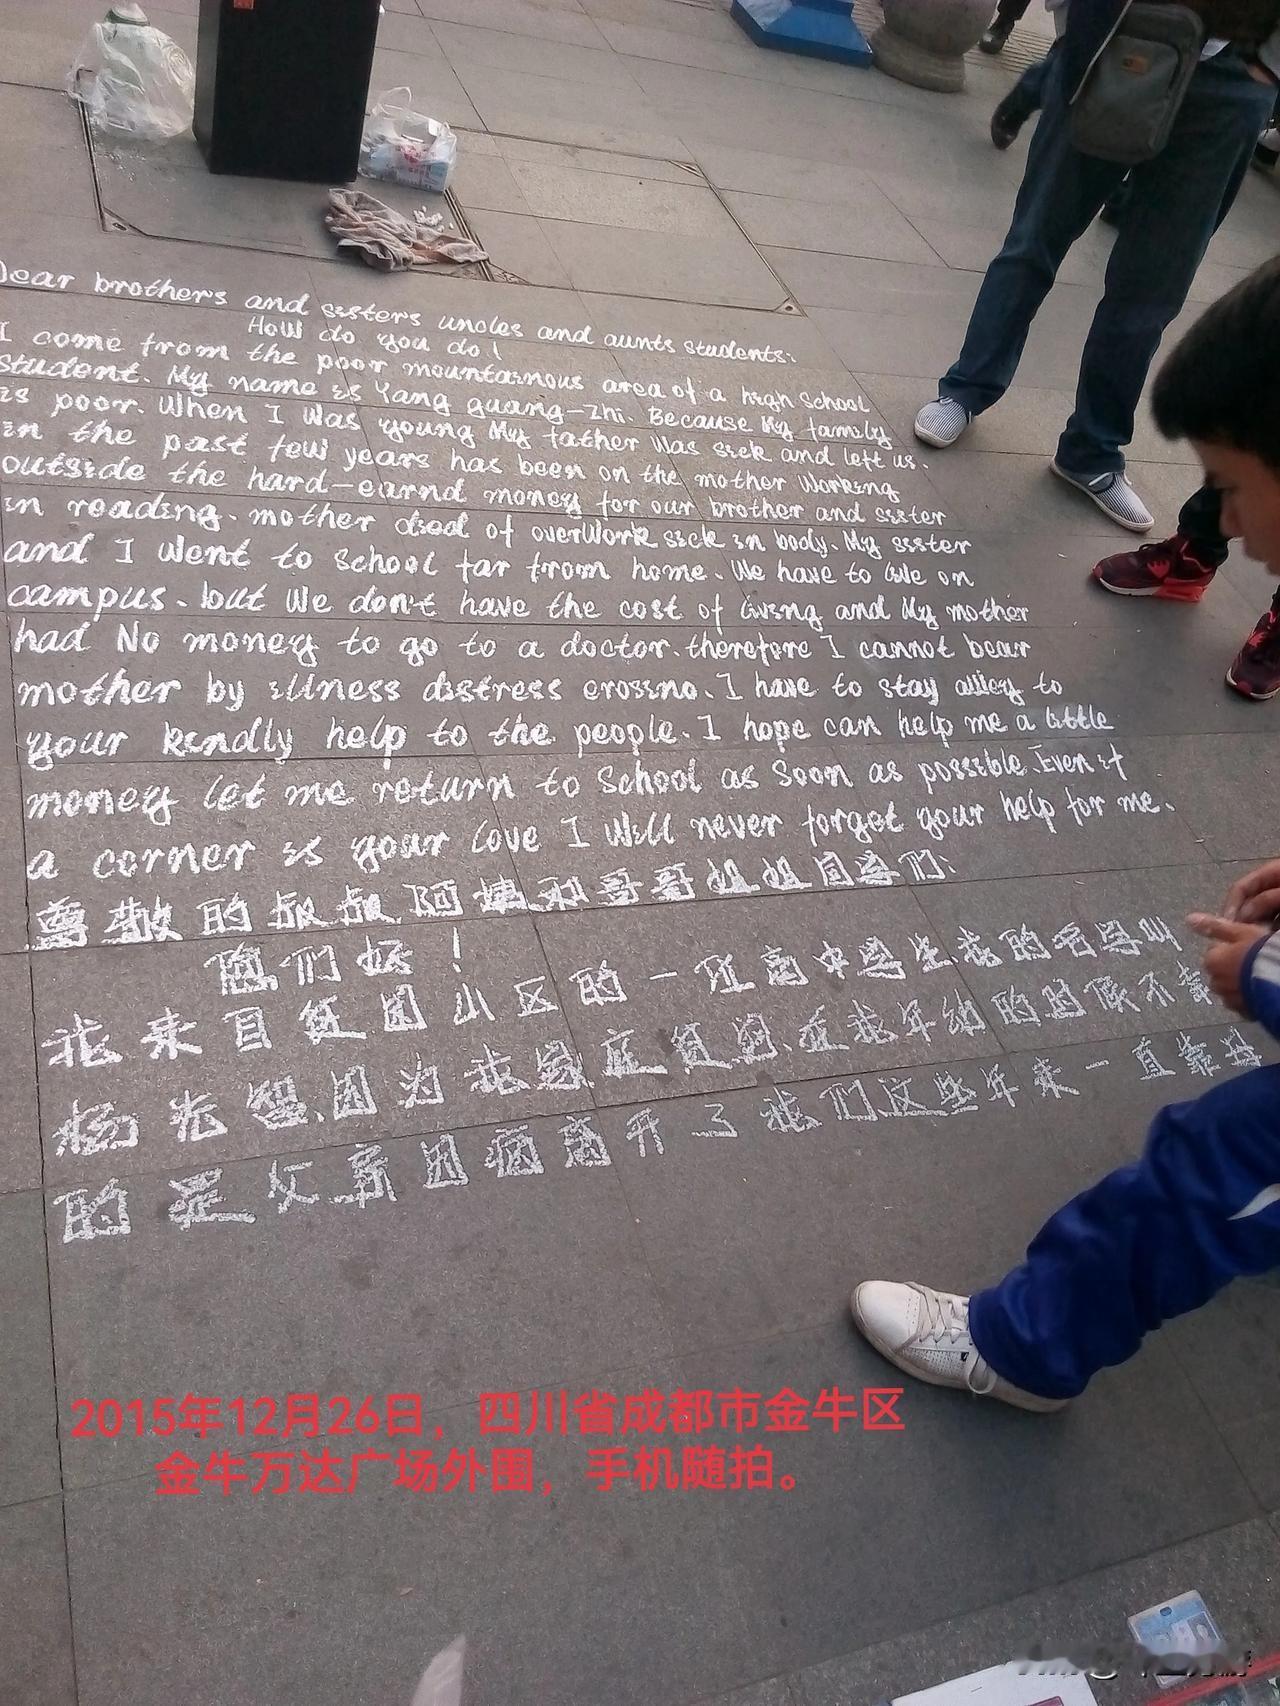 Dear brothers and sisters uncles and aunts students:
How do you do!
I come from the poor mountainous area of a high School
student. My name is Yang guang-zhi. Because My family
is poor. When I was young My father was sick and left us.
in the past few years has been on the mother working
outside the hard-earnd money for our brother and sister
in reading. mother died of overwork sick in body. My sister
and I went to School far from home. We have to live on
campus. but We don't have the cost of living and My mother
had No money to go to a doctor. therefore I cannot bear
mother by illness distress crossno. I have to stay alley to
your kindly help to the people. I hope can help me a little
money let me return to School as Soon as possible Even if
a corner is your love I Will never forget your help for me.
尊敬的叔叔阿姨和哥哥姐姐同学们:
您们好!
我来自贫困山区的一位高中学生我的名字叫
杨光智、因为我家庭贫穷、在我年幼的时候不幸
的是父亲因病离开了我们这些年来一直靠母
2015年12月26日，四川省成都市金牛区
金牛万达广场外围，手机随拍。